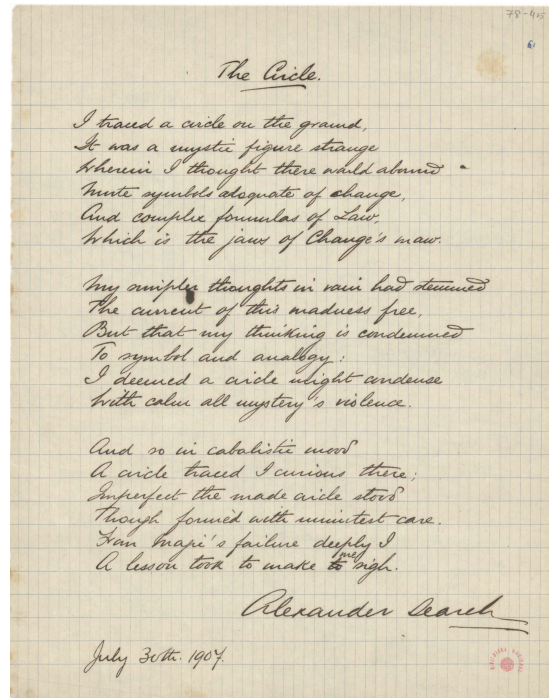 78-415
61
The Circle.
I traced a circle on the ground,
It was a mystic figure strange
Wherein I thought there would abound
Mute symbols adequate of change,
And complex formulas of Law,
Which is the jaws of Change's maw.
My simpler thoughts in vain had stemmed
The current of this madness free,
But that my thinking is condemned
To symbol and analogy:
I deemed a circle might condense
With calm all mystery's violence.
And so in cabalistic mood
A circle traced I curious there;
Imperfect the made circle stood
Though formed with minutest care.
From Magi's failure deeply I
A lesson took to make me sigh.
Alexander Search
July 30th. 1907.